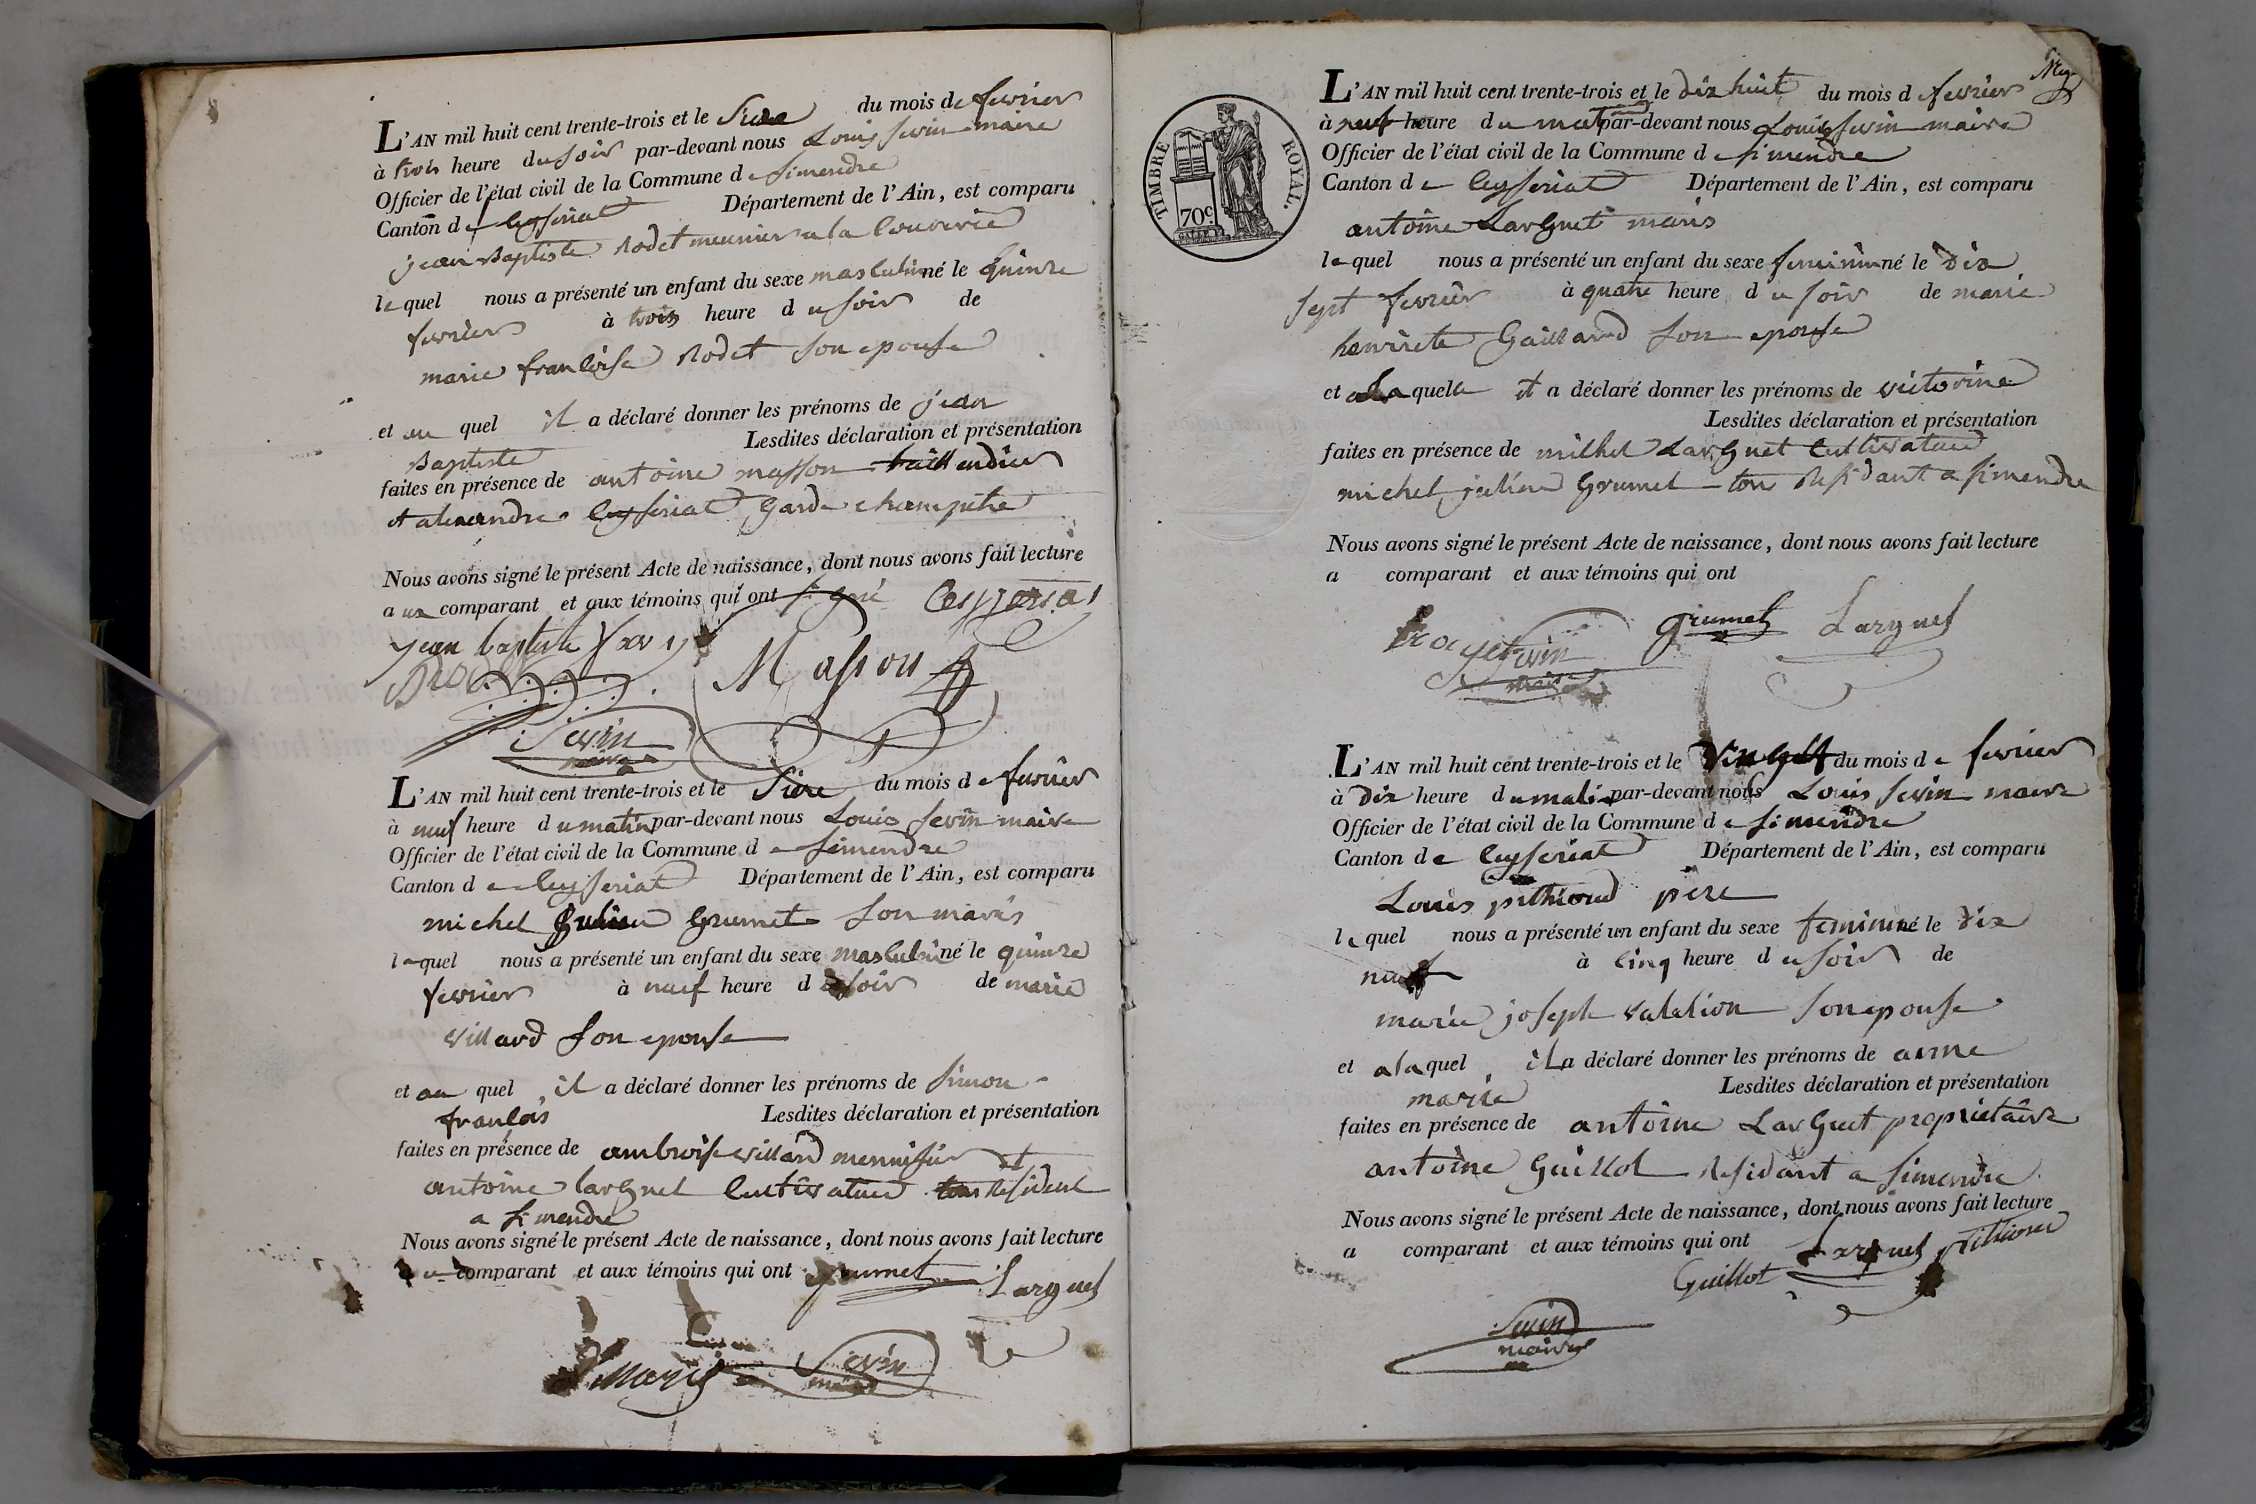 L'AN mil huit cent trente-trois et le Sieze du mois de fevrier
à trois heure du soir par-devant nous Louis sevin maire
Officier de l'état civil de la Commune de simendre
Canton de Ceyseriat Département de l'Ain, est comparu
jean Baptiste Rodet meunier a la
lequel nous a présenté un enfant du sexe masculin né le quinze
fevrier à trois heure du soir de
marie francoise Rodet son epouse
et au quel il a déclaré donner les prénoms de jean
Baptiste Lesdites déclaration et présentation
faites en présence de antoine masson
et alexandre Ceyseriat garde champetre
Nous avons signé le présent Acte de naissance, dont nous avons fait lecture
a ux comparant et aux témoins qui ont signé Ceyzeriat
jean baptiste
Rodet Masson
Sevin
maire
L'AN mil huit cent trente-trois et le Sieze du mois de fevrier
à neuf heure du matin par-devant nous Louis Sevin maire
Officier de l'état civil de la Commune de simendre
Canton de Ceyseriat Département de l'Ain, est comparu
michel julien Grumet son maris
lequel nous a présenté un enfant du sexe masculin né le quinze
fevrier à neuf heure du soir de marie
villard son epouse
et au quel il a déclaré donner les prénoms de simon
francois Lesdites déclaration et présentation
faites en présence de ambroise villard mennisier et
antoine larguet cultivateur tous resident
a simendre
Nous avons signé le présent Acte de naissance, dont nous avons fait lecture
au comparant et aux témoins qui ont grumet Larguet
Sevin
maire
TIMBRE ROYAL.
70c.
L'AN mil huit cent trente-trois et le dix huit du mois de fevrier
à neuf heure du matin par-devant nous Louis sevin maire
Officier de l'état civil de la Commune de simendre
Canton de Ceyseriat Département de l'Ain, est comparu
antoine Larguet maris
lequel nous a présenté un enfant du sexe feminin né le dix
sept fevrier à quatre heure du soir de marie
henriete Gaillard son epouse
et a la quelle il a déclaré donner les prénoms de victorine
Lesdites déclaration et présentation
faites en présence de michel Larguet cultivateur
michel julien Grumet tous residant a simendre
Nous avons signé le présent Acte de naissance, dont nous avons fait lecture
a comparant et aux témoins qui ont
grumet Larguet
Sevin
maire
L'AN mil huit cent trente-trois et le vinght du mois de fevrier
à dix heure du matin par-devant nous Louis sevin maire
Officier de l'état civil de la Commune de simendre
Canton de Ceyseriat Département de l'Ain, est comparu
Louis pithioud pere
lequel nous a présenté un enfant du sexe feminin né le dix
neuf à cinq heure du soir de
marie joseph valalion son epouse
et a la quel il a déclaré donner les prénoms de anne
marie Lesdites déclaration et présentation
faites en présence de antoine Larguet proprietaire
antoine Guillot residant a simendre
Nous avons signé le présent Acte de naissance, dont nous avons fait lecture
a comparant et aux témoins qui ont Larguet pithioud
Guillot
Sevin
maire